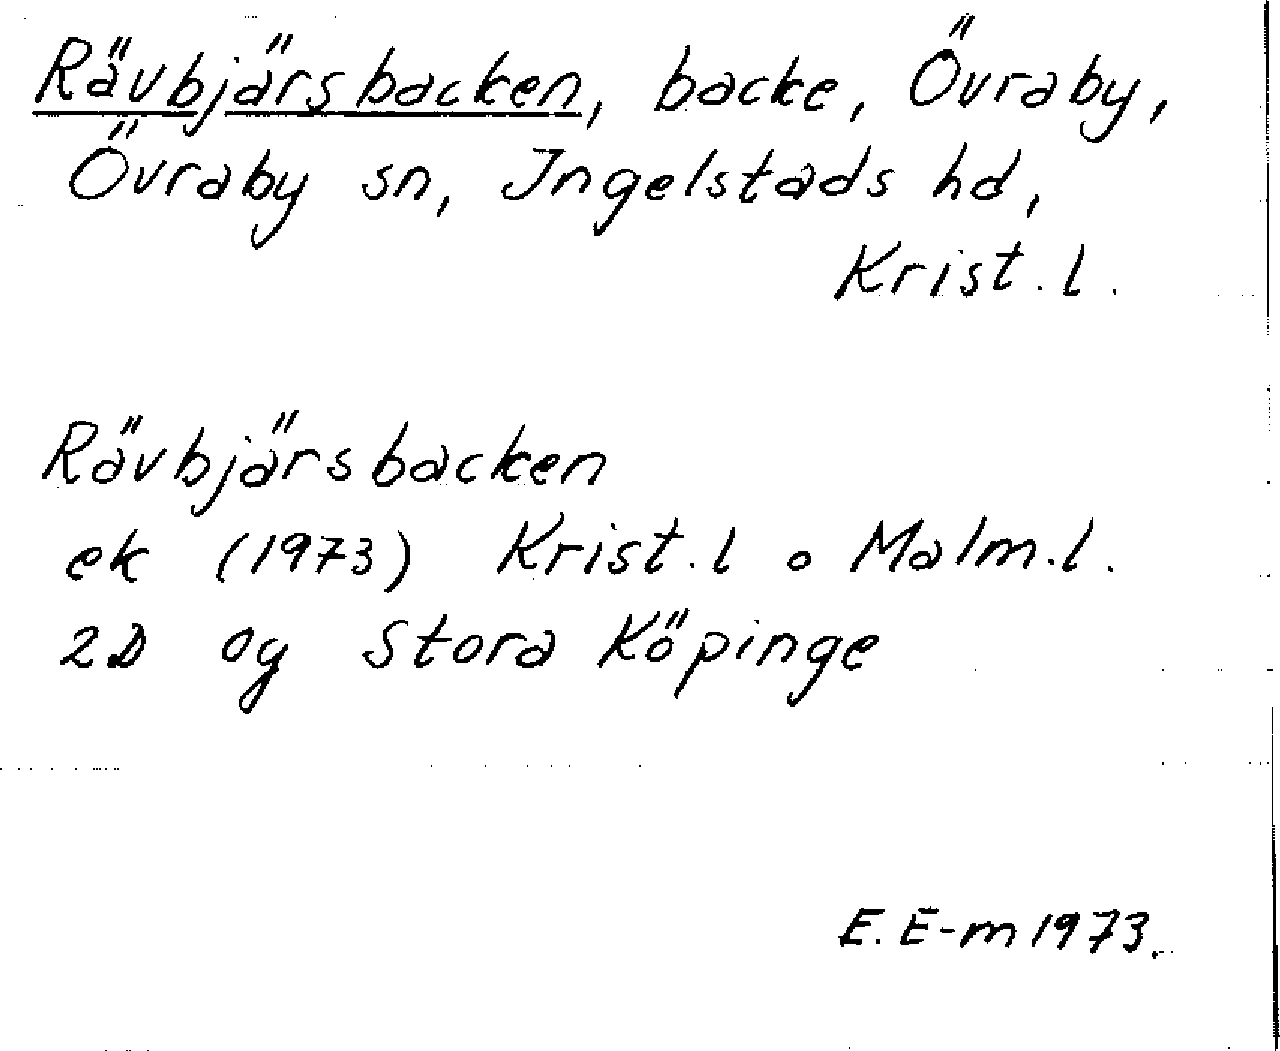 Rävbjärsbacken, backe, Övraby,
Övraby sn, Ingelstads hd,
Krist. l.
Rävbjärsbacken
ek (1973) Krist. l o Malm. l.
2D 0g Stora Köpinge
E. E-m 1973.